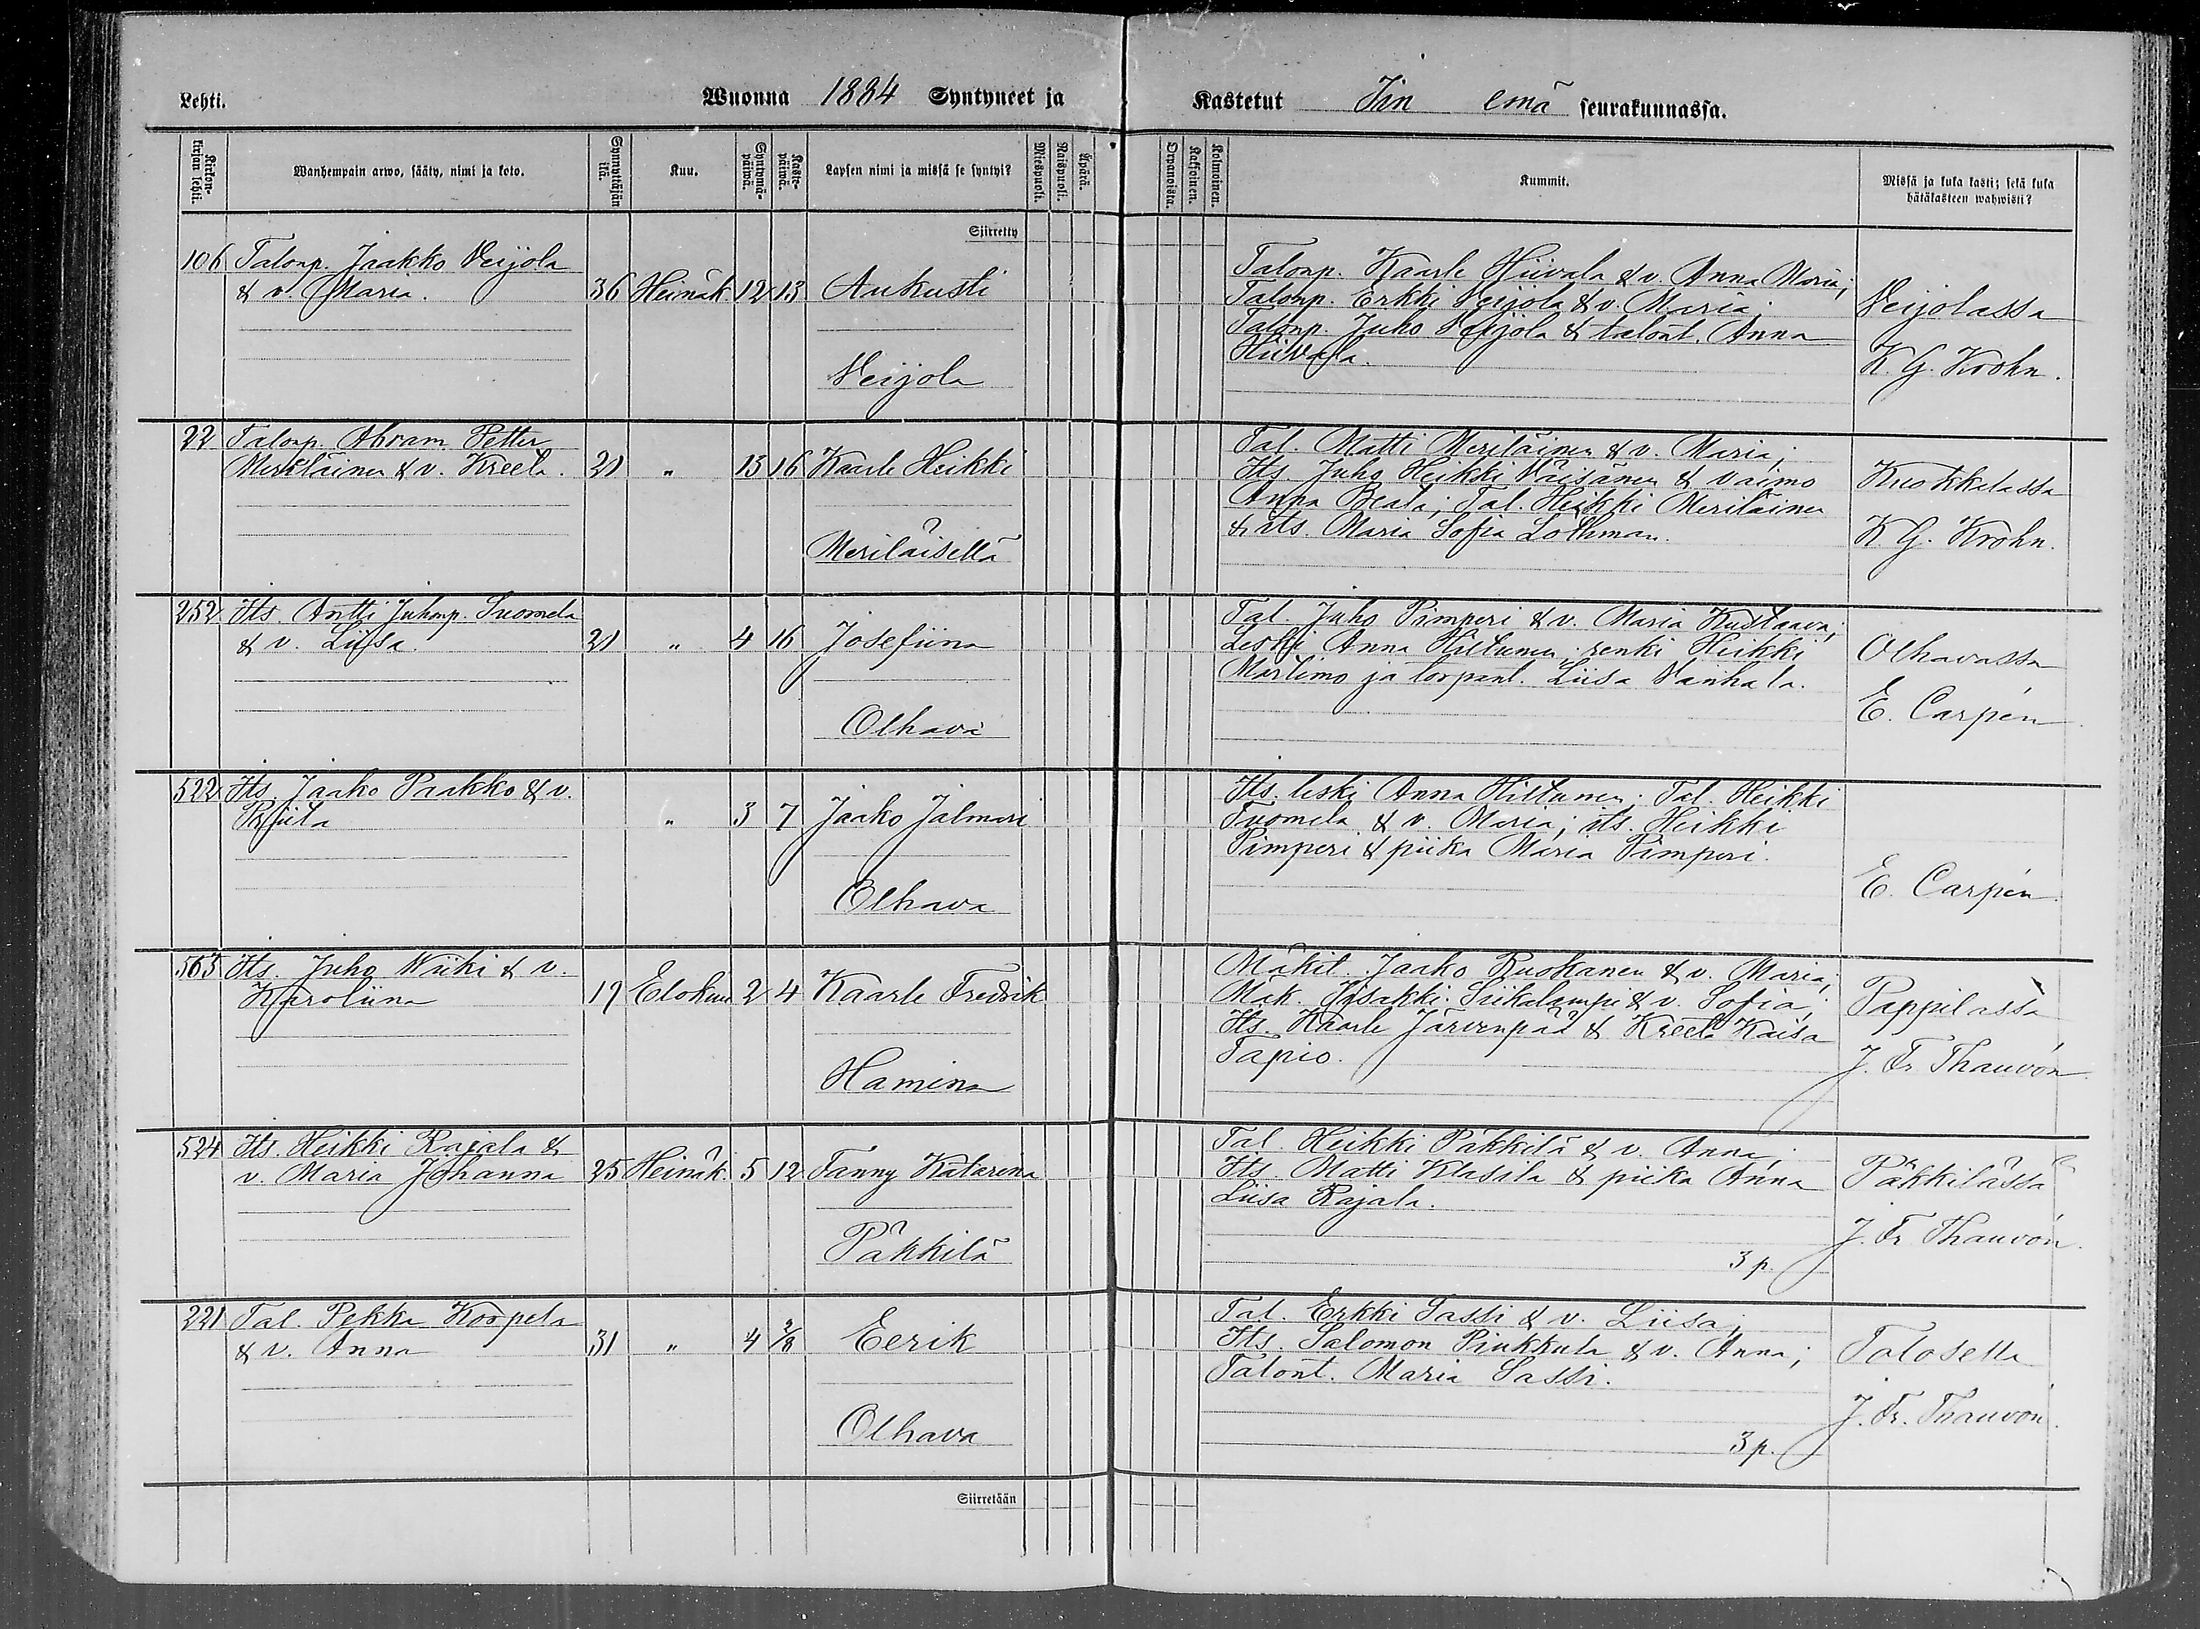 Lehti. Wuonna 1884 Syntyneet ja Kastetut Iin emä seurakunnassa.
Kirkonkirjan lehti. Wanhempain arwo, sääty, nimi ja koto. Synnyttäjän ikä. Kuu. Syntymäpäiwä. Kastepäiwä. Lapsen nimi ja missä se syntyi? Miespuoli. Naispuoli. Äpärä. Orpanoista. Kaksoinen. Kolmoinen. Kummit. Missä ja kuka kasti; sekä kuka hätäkasteen wahwisti?
Siirretty
106 Talonp. Jaakko Veijola
& v. Maria. 36 Heinäk. 12 13 Aukusti
Veijola
Talonp. Kaarle Hiivala & v. Anna Maria;
Talonp. Erkki Veijola & v. Maria;
Talonp. Juho Veijola & talont. Anna
Hiivala.
Veijolassa
K. G. Krohn.
22 Talonp. Abram Petter
Meriläinen & v. Kreeta. 21 " 15 16 Kaarle Heikki
Meriläisellä
Tal. Matti Meriläinen & v. Maria;
Its. Juho Heikki Väisänen & vaimo
Anna Beata; Tal. Heikki Meriläinen
& its. Maria Sofia Lothman.
K. G. Krohn.
252 Its. Antti Juhonp. Suomela
& v. Liisa. 21 " 4 16 Josefiina
Olhava
Tal. Juho Pimperi & v. Maria Kustaava;
Leski Anna Hiltunen; renki Heikki
Martimo ja torpant. Liisa Vanhala.
Olhavassa
E. Carpén
522 Its. Jaako Paakko & v.
" 3 7 Jaako Jalmari
Olhava
Its. leski Anna Hiltunen; Tal. Heikki
Tuomela & v. Maria; its. Heikki
Pimperi & piika Maria Pimperi.
E. Carpén.
565 Its. Juho Wiiki & v.
Karoliina 19 Elokuu 2 4 Kaarle Fredrik
Hamina
Mäkit. Jaako Ruokanen & v. Maria;
Mäk. Iisakki Siikalampi & v. Sofia;
Its. Kaarle Järvenpää & Kreeta Kaisa
Tapio.
Pappilassa
J. Fr. Thauvón.
524 Its. Heikki Rajala &
v. Maria Johanna 25 Heinäk. 5 12 Fanny Katarina
Päkkilä
Tal. Heikki Päkkilä & v. Anna;
Its. Matti Klasila & piika Anna
Liisa Rajala.
3 p.
Päkkilässä
J. Fr. Thauvón.
221 Tal. Pekka Korpela
& v. Anna 31 " 4 2/8 Eerik
Olhava
Tal. Erkki Sassi & v. Liisa;
Its. Salomon Pinkkula & v. Anna;
Talont. Maria Sassi.
3 p.
J. Fr. Thauvón.
Siirretään